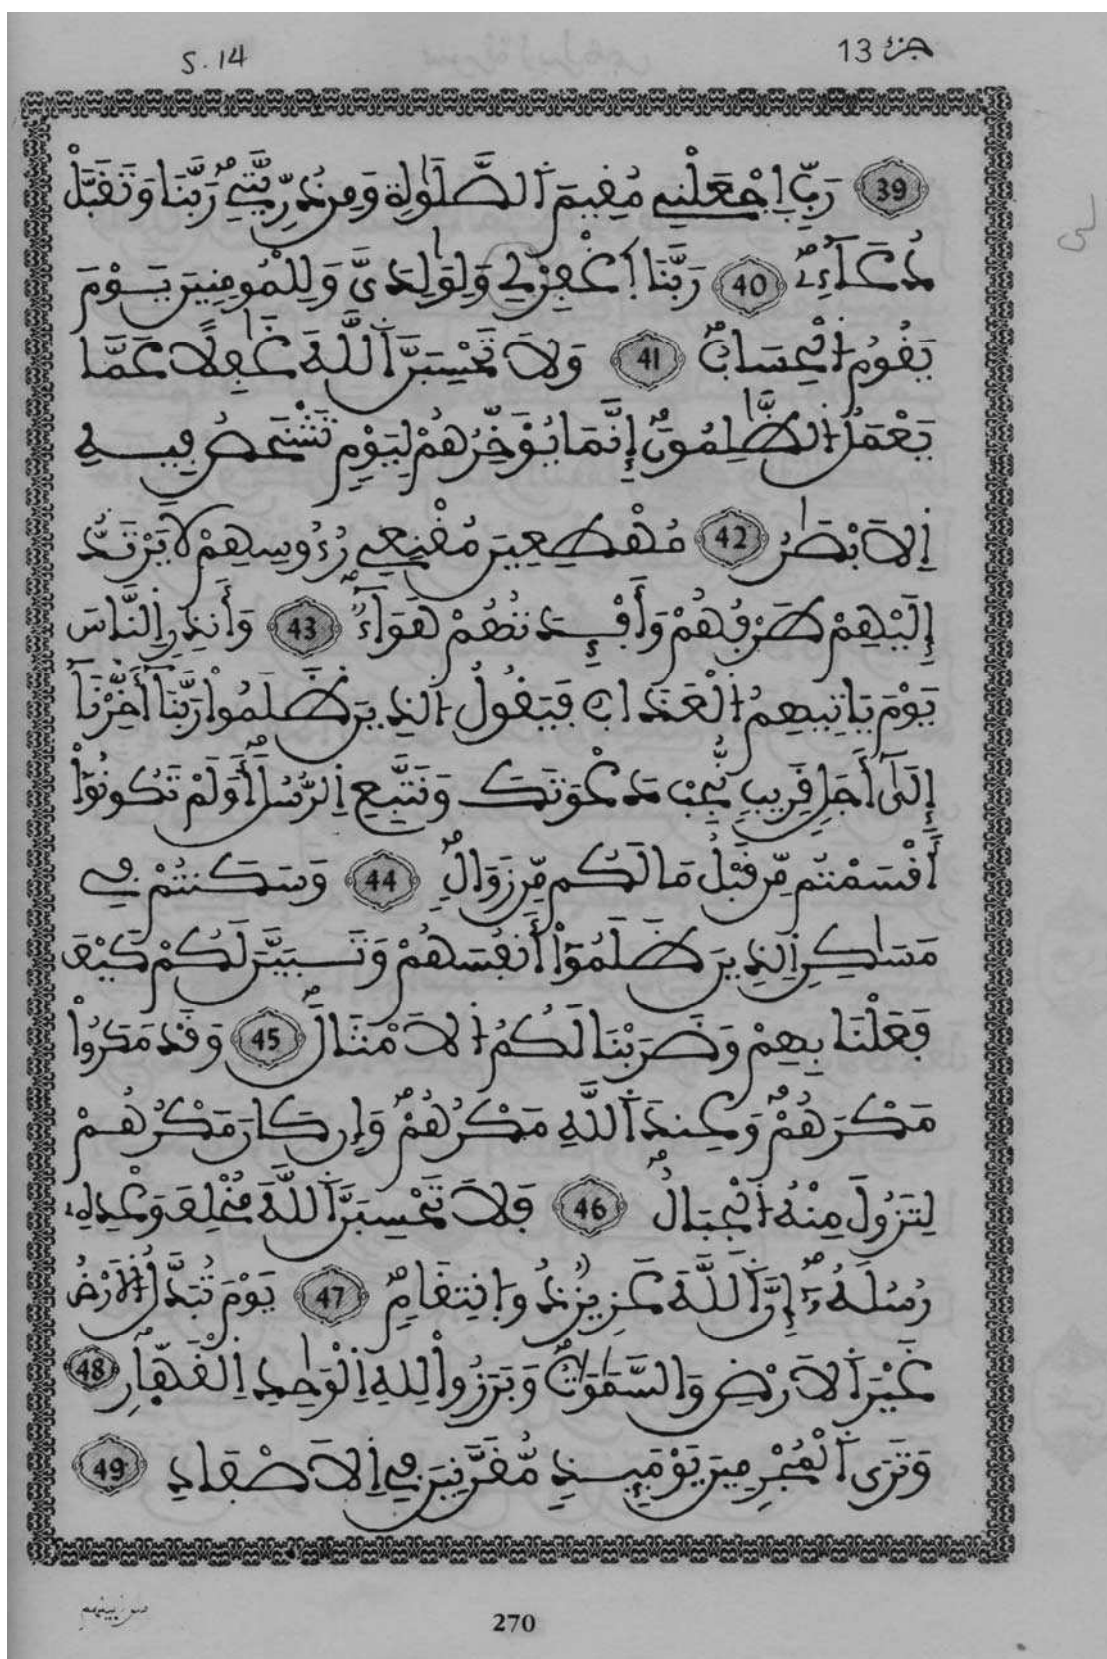 S. 14 جزء 13
39 رَبِّ اِجْعَلْنِے مُفِيمَ اَ۬لصَّلَوٰةِ وَمِن ذُرِّيَّتِےۖ رَبَّنَا وَتَفَبَّلْ
دُعَآءِۖ 40 رَبَّنَا اَ۪غْفِرْ لِے وَلِوَٰلِدَيَّ وَلِلْمُومِنِينَ يَوْمَ
يَفُومُ اُ۬لْحِسَابُۖ 41 وَلَا تَحْسِبَنَّ اَ۬للَّهَ غَٰفِلًا عَمَّا
يَعْمَلُ اُ۬لظَّٰلِمُونَۖ إِنَّمَا يُؤَخِّرُهُمْ لِيَوْمٖ تَشْخَصُ فِيهِ
اِ۬لَابْصَٰرُ 42 مُهْطِعِينَ مُفْنِعِے رُءُوسِهِمْ لَا يَرْتَدُّ
إِلَيْهِمْ طَرْفُهُمْ وَأَفْـِٕدَتُهُمْ هَوَآءٞۖ 43 وَأَنذِرِ اِ۬لنَّاسَ
يَوْمَ يَاتِيهِمُ اُ۬لْعَذَابُ فَيَفُولُ اُ۬لذِينَ ظَلَمُواْ رَبَّنَآ أَخِّرْنَآ
إِلَيٰٓ أَجَلٖ فَرِيبٖ نُّجِبْ دَعْوَتَكَ وَنَتَّبِعِ اِ۬لرُّسُلَۖ أَوَلَمْ تَكُونُوٓاْ
أَفْسَمْتُم مِّن فَبْلُ مَا لَكُم مِّن زَوَالٖۖ 44 وَسَكَنتُمْ فِے
مَسَٰكِنِ اِ۬لذِينَ ظَلَمُوٓاْ أَنفُسَهُمْ وَتَبَيَّنَ لَكُمْ كَيْفَ
فَعَلْنَا بِهِمْ وَضَرَبْنَا لَكُمُ اُ۬لَامْثَالَۖ 45 وَفَدْ مَكَرُواْ
مَكْرَهُمْۖ وَعِندَ اَ۬للَّهِ مَكْرُهُمْۖ وَإِن كَانَ مَكْرُهُمْ
لِتَزُولَ مِنْهُ اُ۬لْجِبَالُۖ 46 فَلَا تَحْسِبَنَّ اَ۬للَّهَ مُخْلِفَ وَعْدِهِۦ
رُسُلَهُۥٓۖ إِنَّ اَ۬للَّهَ عَزِيزٞ ذُو اُ۪نتِفَامٖۖ 47 يَوْمَ تُبَدَّلُ اُ۬لَارْضُ
غَيْرَ اَ۬لَارْضِ وَالسَّمَٰوَٰتُۖ وَبَرَزُواْ لِلهِ اِ۬لْوَٰحِدِ اِ۬لْفَهّ۪ارِ 48
وَتَرَى اَ۬لْمُجْرِمِينَ يَوْمَئِذٖ مُّفَرَّنِينَ فِے اِ۬لَاصْفَادِ 49
270